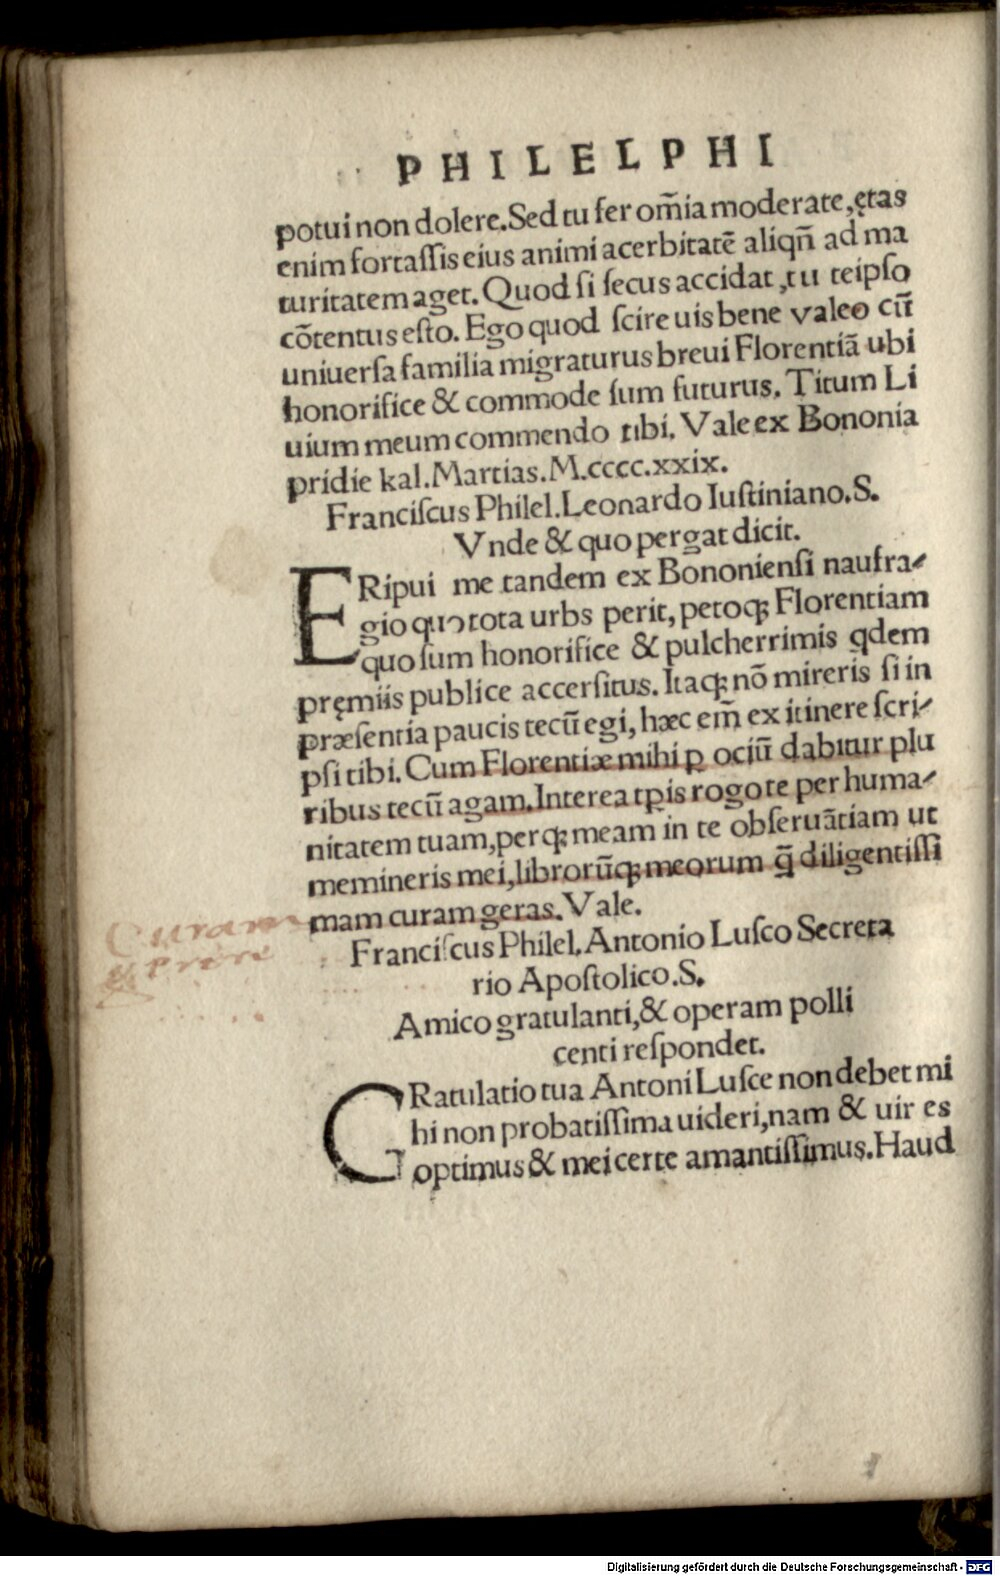 PHILELPHI
potui non dolere. Sed tu fer om̃ia moderate, ętas
enim fortaſſis eius animi acerbitatẽ aliqñ ad ma
turitatem aget. Quod ſi ſecus accidat, tu teipſo
cõtentus eſto. Ego quod ſcire uis bene valeo cũ
uniuerſa familia migraturus breui Florentiã ubi
honorifice & commode ſum futurus. Titum Li
uium meum commendo tibi. Vale ex Bononia
pridie kal. Martias. M.cccc.xxix.
Franciſcus Philel. Leonardo Iuſtiniano. S.
Vnde & quo pergat dicit.
ERipui me tandem ex Bononienſi naufra-
gio quo tota urbs perit, petoqꝫ Florentiam
quo ſum honorifice & pulcherrimis qdem
pręmiis publice accerſitus. Itaqꝫ nõ mireris ſi in
præſentia paucis tecũ egi, hæc em̃ ex itinere ſcri-
pſi tibi. Cum Florentiæ mihi ꝑ ociũ dabitur plu
ribus tecũ agam. Interea tꝑis rogo te per huma-
nitatem tuam, perqꝫ meam in te obſeruãtiam ut
memineris mei, librorũqꝫ meorum q̃ diligentiſſi
mam curam geras. Vale.
Curam
gerere
Franciſcus Philel. Antonio Luſco Secreta
rio Apoſtolico. S.
Amico gratulanti, & operam polli
centi reſpondet.
GRatulatio tua Antoni Luſce non debet mi
hi non probatiſſima uideri, nam & uir es
optimus & mei certe amantiſſimus. Haud
Digitalisierung gefördert durch die Deutsche Forschungsgemeinschaft - DFG